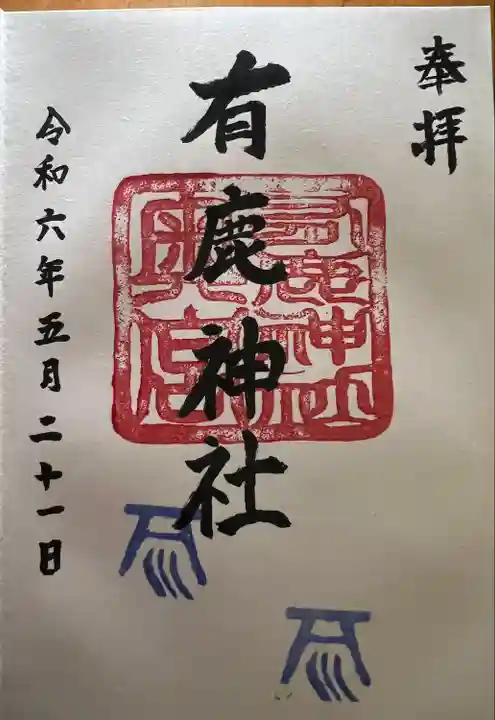 奉拝
有鹿神社
令和六年五月二十一日